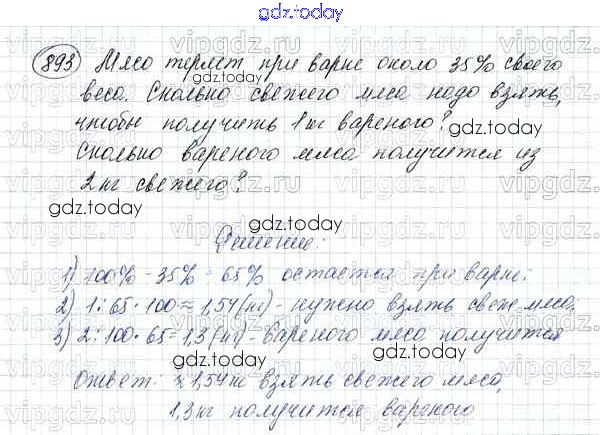 gdz.today
893 Мясо теряет при варке около 35% своего
веса. Сколько свежего мяса надо взять,
чтобы получить 1 кг вареного?
Сколько вареного мяса получится из
2 кг свежего?
Решение:
1) 100% - 35% = 65% остается при варке.
2) 1 : 65 · 100 ≈ 1,54 (кг) - нужно взять свеж. мяса.
3) 2 : 100 · 65 = 1,3 (кг) - вареного мяса получится
Ответ: ≈ 1,54 кг взять свежего мяса,
1,3 кг получится вареного
vipgdz.ru
gdz.today